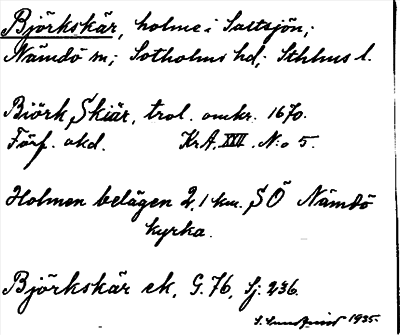 Björkskär, holme i Saltsjön;
Nämdö sn; Sotholms hd; Sthlms l.
Biörk Skiär, trol. omkr. 1670.
Förf. okd. KrA. XXV. N:o 5.
Holmen belägen 2,1 km. SÖ Nämdö
kyrka.
Björkskär ek, G. 76, Sj: 236.
S. Lundqvist 1935.